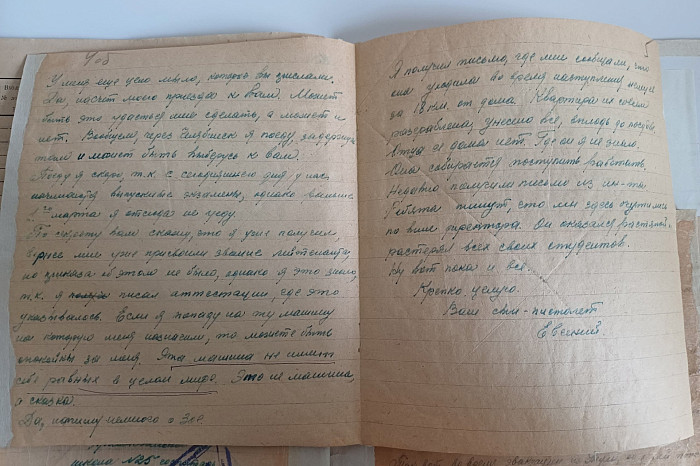 У меня еще цело мыло, которое вы прислали.
Да, насчет моего приезда к Вам. Может
быть это удастся мне сделать, а может и
нет. Вообщем, через Челябинск я поеду, задержусь
там и может быть выберусь к вам.
Поеду я скоро, т.к. с сегодняшнего дня у нас
начинаются выпускные экзамены, однако раньше
1го марта я отсюда не уеду.
По секрету вам скажу, что я уже получил,
мне уже присвоили звание лейтенанта,
но приказа об этом не было, однако я это знаю,
т.к. я писал аттестации, где это
указывалось. Если я попаду на ту машину
на которую меня назначили, то можете быть
спокойны за меня. Эта машина не имеет
себе равных в целом мире. Это не машина,
а сказка.
Да, напишу немного о Зое.
Я получил письмо, где мне сообщали, что
она уходила во время наступления немцев
за 18 км. от дома. Квартира их совсем
разграблена, унесено все, вплоть до посуды.
Отца её дома нет. Где он я не знаю.
Она собирается поступить работать.
Недавно получили письмо из ин-та.
Ребята пишут, что мы здесь очутились
по вине директора. Он оказался
растерял всех своих студентов.
Ну вот пока и все.
Крепко целую.
Ваш сын-
Евгений.
школа №25